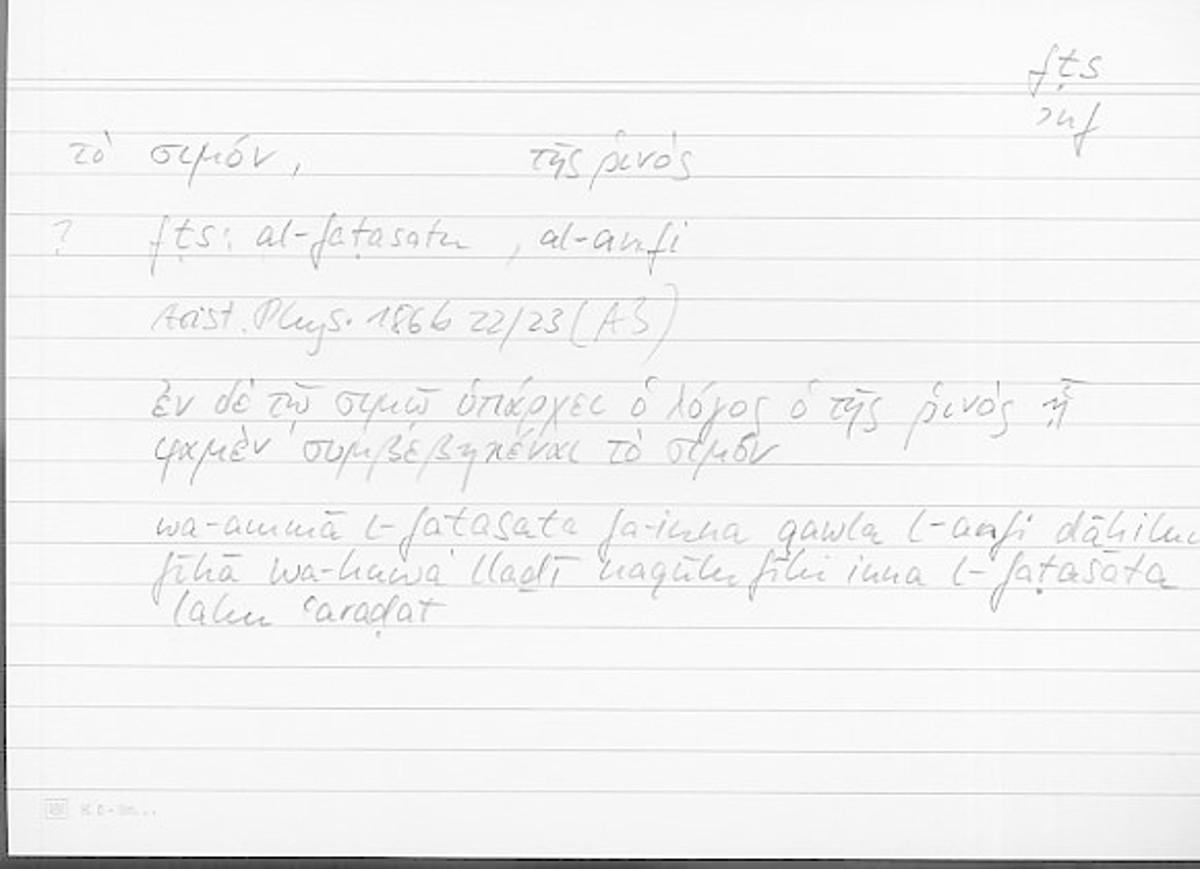 fṭs
ʾnf
τὸ σιμόν, τῆς ῥινός
? fṭs: al-faṭasatu , al-anfi
Arist. Phys. 186b 22/23 (A3)
ἐν δὲ τῷ σιμῷ ὑπάρχει ὁ λόγος ὁ τῆς ῥινὸς ᾗ
φαμὲν συμβεβηκέναι τὸ σιμόν
wa-ammā l-faṭasata fa-inna qawla l-anfi dāḫilun
fīhā wa-huwa lladī naqūlu fīhi inna l-faṭasata
lahu ʿaraḍat